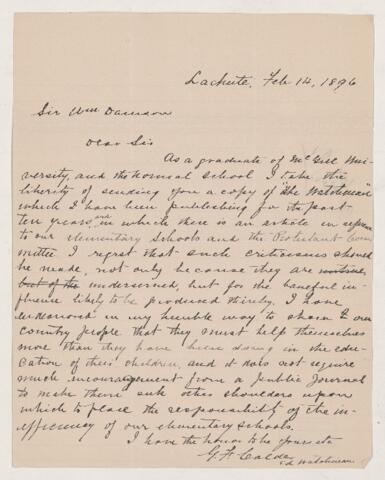 Lachute, Feb 14, 1896
Sir Wm Dawson
Dear Sir
As a graduate of McGill Uni-
versity, and the Normal School I take the
liberty of sending you a copy of "The Watchman"
which I have been publishing for the past
ten years, and in which there is an article in reference
to our elementary schools and the Protestant Com
mittee I regret that such criticisms should
be made, not only because they are
but of the undeserved, but for the baneful in-
fluence likely to be produced thereby. I have
endeavored in my humble way to show to our
country people that they must help themselves
more than they have been doing in the edu-
cation of their children, and it does not require
much encouragement from a Public Journal
to make them seek other shoulders upon
which to place the responsibility of the in-
efficiency of our elementary schools.
I have the honor to be yours etc
G. F. Calder
Ed Watchman